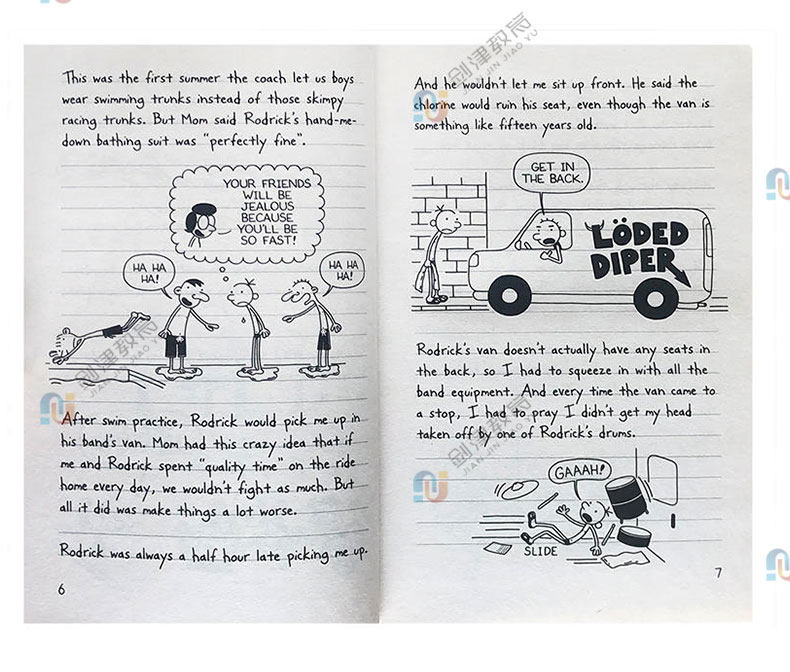 This was the first summer the coach let us boys
wear swimming trunks instead of those skimpy
racing trunks. But Mom said Rodrick's hand-me-
down bathing suit was "perfectly fine".
YOUR FRIENDS
WILL BE
JEALOUS
BECAUSE
YOU'LL BE
SO FAST!
HA HA
HA!
HA HA
HA!
After swim practice, Rodrick would pick me up in
his band's van. Mom had this crazy idea that if
me and Rodrick spent "quality time" on the ride
home every day, we wouldn't fight as much. But
all it did was make things a lot worse.
Rodrick was always a half hour late picking me up.
6
And he wouldn't let me sit up front. He said the
chlorine would ruin his seat, even though the van is
something like fifteen years old.
GET IN
THE BACK.
LÖDED
DIPER
Rodrick's van doesn't actually have any seats in
the back, so I had to squeeze in with all the
band equipment. And every time the van came to
a stop, I had to pray I didn't get my head
taken off by one of Rodrick's drums.
GAAAH!
SLIDE
7
剑津教育
JIAN JIN JIAO YU
剑津教育
JIAN JIN JIAO YU
剑津教育
JIAN JIN JIAO YU